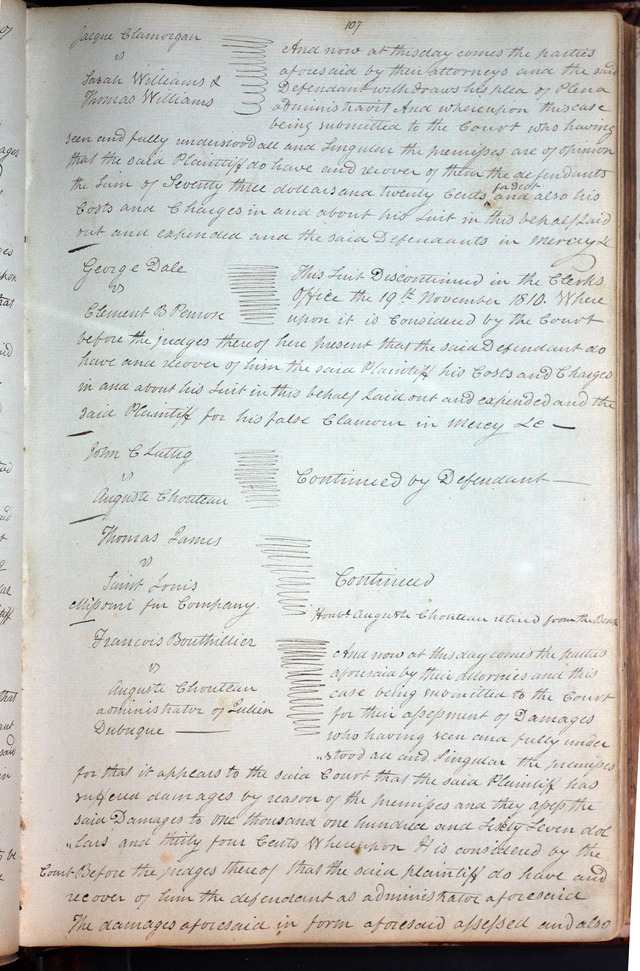 107
Jacque Clamorgan
vs
Sarah Williams &
Thomas Williams
And now at this day comes the parties
aforesaid by their attorneys and the said
Defendant withdraws his plea of Plena
administravit And whereupon this case
being submitted to the Court who having
seen and fully understood all and Singular the premisses are of opinion
that the said Plaintiff do have and recover of them the defendants
the Sum of Seventy three dollars and twenty Cents and also his
Costs and Charges in and about his Suit in this behalf Laid
out and expended and the said Defendants in Mercy &c
George Dale
vs
Clement B Penrose
This Suit Discontinued in the Clerks
Office the 19th November 1810. Where
upon it is Considered by the Court
before the judges thereof here present that the said Defendant do
have and recover of him the said Plaintiff his Costs and Charges
in and about his Suit in this behalf Laid out and expended and the
said Plaintiff for his false Clamour in Mercy &c
John C Luttig
vs
Auguste Chouteau
Continued by Defendant
Thomas James
vs
Saint Louis
Missouri fur Company.
Continued
Honbl Auguste Chouteau retired from the Bench
Francois Bouthillier
vs
Auguste Chouteau
administrator of Julien
Dubuque
And now at this day comes the parties
aforesaid by their attornies and this
case being submitted to the Court
for their assessment of Damages
who having seen and fully under
"stood all and Singular the premisses
for that it appears to the said Court that the said Plaintiff has
suffered damages by reason of the premisses and they assess the
said Damages to one thousand one hundred and Sixty Seven dol
"lars and thirty four Cents Whereupon It is considered by the
Court Before the judges thereof that the said plaintiff do have and
recover of him the defendant as administrator aforesaid
The damages aforesaid in form aforesaid assessed and also